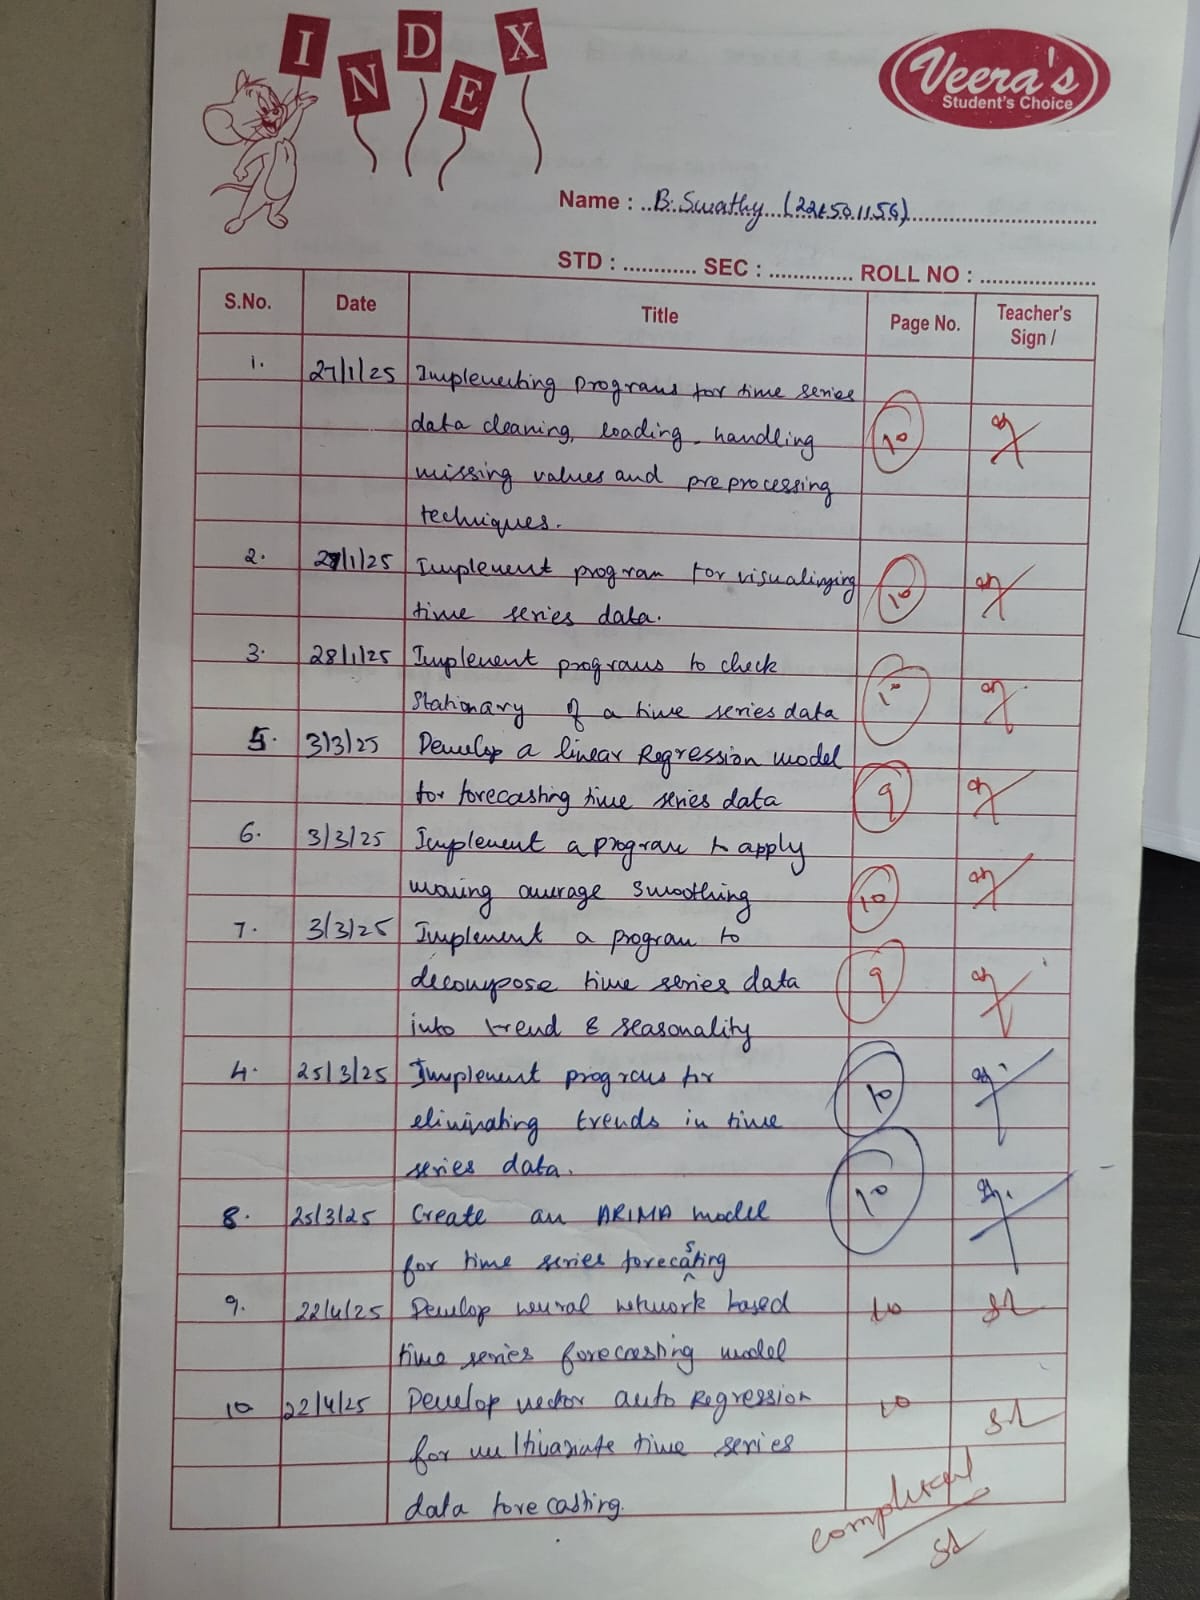 INDEX
Veera's
Student's Choice
Name : B. Swathy (221501156)
STD : ............ SEC : .............. ROLL NO : ....................
S.No. Date Title Page No. Teacher's Sign /
1. 27/1/25 Implementing programs for time series
data cleaning, loading, handling 10
missing values and preprocessing
techniques.
2. 27/1/25 Implement program for visualinzing 10
time series data.
3. 28/1/25 Implement programs to check
Stationary of a time series data 10
5. 3/3/25 Develop a linear Regression model
for forecasting time series data 9
6. 3/3/25 Implement a program to apply
moving average smoothing 10
7. 3/3/25 Implement a program to
decompose time series data 9
into trend & seasonality
4. 25/3/25 Implement programs for 10
eliminating trends in time
series data.
8. 25/3/25 Create an ARIMA model 10
for time series forecasting
9. 22/4/25 Develop neural network based 10
time series forecasting model
10 22/4/25 Develop vector auto Regression 10
for multivariate time series
data forecasting.
completed